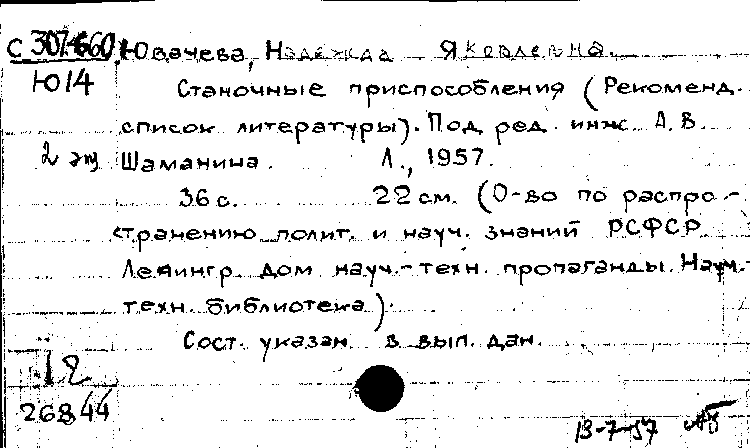 С 307660 Ювачева, Надежда Яковлевна.
Ю14 Станочные приспособления (Рекоменд.
список литературы). Под ред. инж. А.В.
2 экз Шаманина. Л., 1957.
36 с. 22 см. (О-во по распро-
странению полит. и науч. знаний РСФСР
Ленингр. дом науч.-техн. пропаганды. Науч.-
техн. библиотека).
Сост. указан в вып. дан.
12
26844
13-7-57